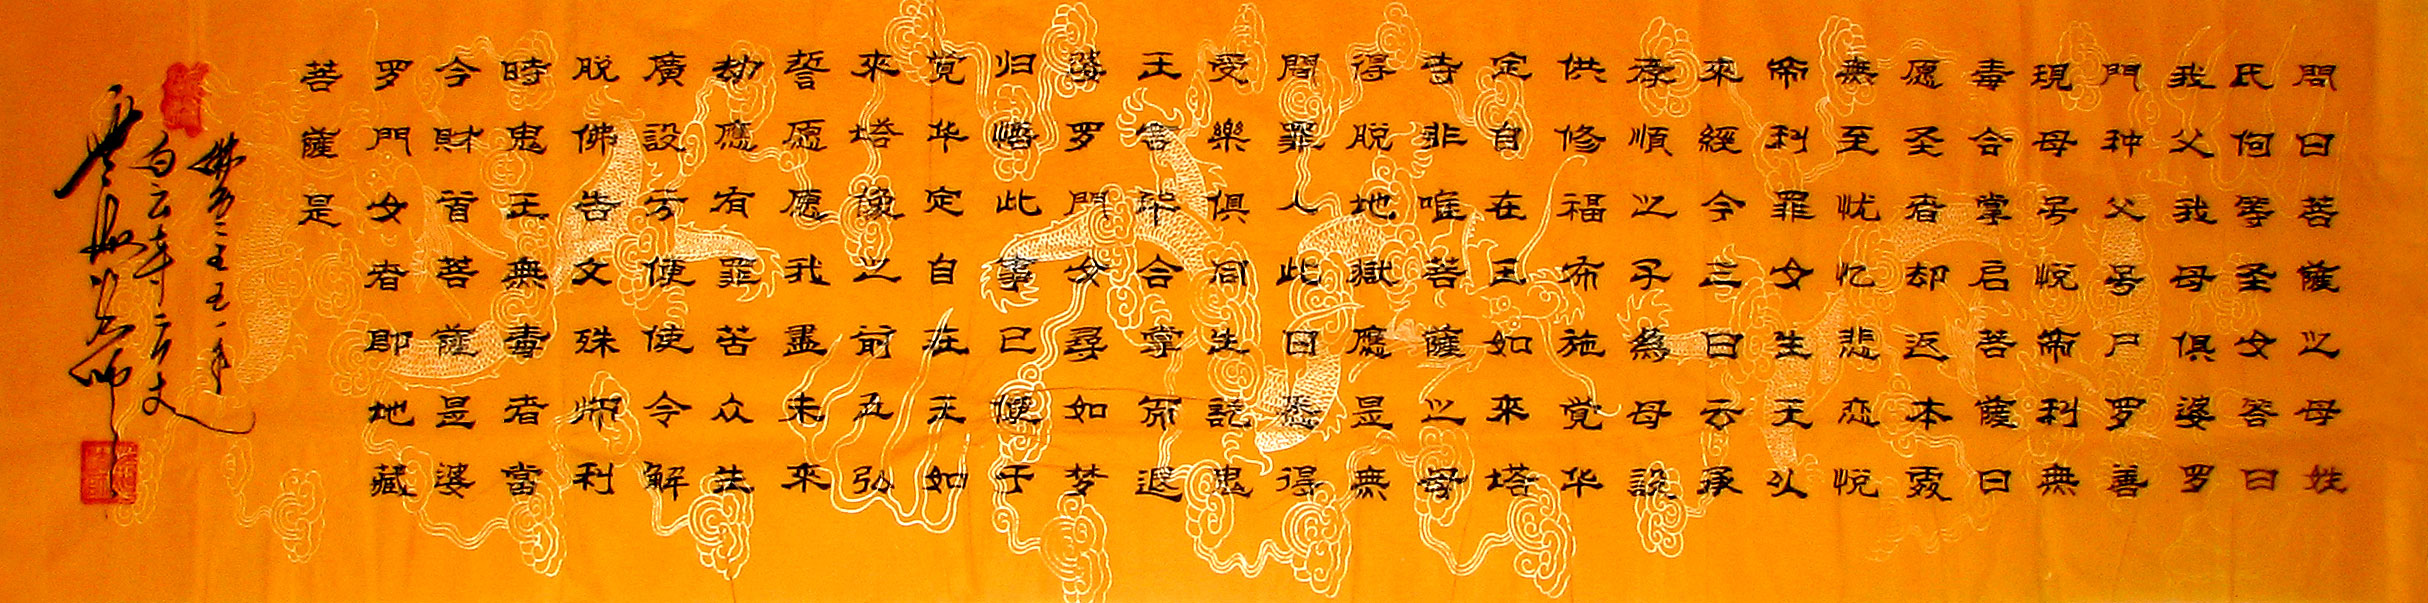 問曰菩薩之母姓
氏何等圣女答曰
我父我母俱婆罗
門种父号尸罗善
現母号悦帝利無
毒合掌启菩薩曰
愿圣者却返本處
無至忧忆悲恋悦
帝利罪女生天以
來經今三日云承
孝順之子為母設
供修福布施觉华
定自在王如來塔
寺非唯菩薩之母
得脱地獄應是無
間罪人此日悉得
受樂俱同生訖鬼
王言毕合掌而退
婆罗門女尋如梦
归悟此事已便于
觉华定自在王如
來塔像之前立弘
誓愿愿我盡未來
劫應有罪苦众生
廣設方便使令解
脱佛告文殊师利
時鬼王無毒者當
今財首菩薩是婆
罗門女者即地藏
菩薩是
佛历二五五一年
白云寺方丈